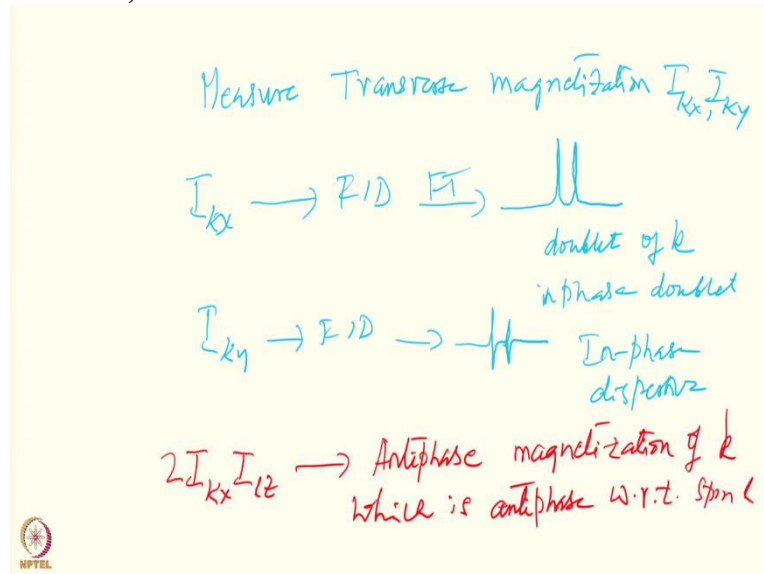 Measure Transverse magnetization I_kx, I_ky
I_kx → FID FT→
doublet of k
inphase doublet
I_ky → FID → In-phase
dispersive
2I_kx I_lz → Antiphase magnetization of k
which is antiphase w.r.t. spin l
NPTEL